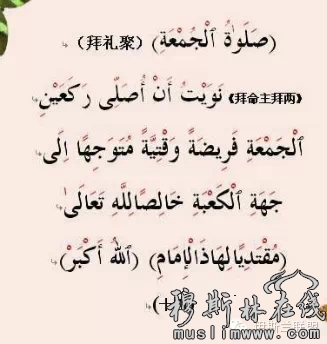 (صَلَوٰةُ ٱلْجُمْعَةِ) (聚礼拜)
《两拜主命拜》 نَوَيْتُ أَنْ أُصَلِّى رَكَعَيْنِ
ٱلْجَمْعَةِ فَرِيضَةً وَقْتِيَّةً مُتَوَجِهًا اِلَى
جَهَةِ ٱلْكَعْبَةِ خَالِصًا لِلَّهِ تَعَالَىٰ
(مُقْتَدِيًا لِهَاذَ ٱلْإِمَامِ) (ٱللهُ أَكْبَرْ)
穆斯林在线
muslimwww.com